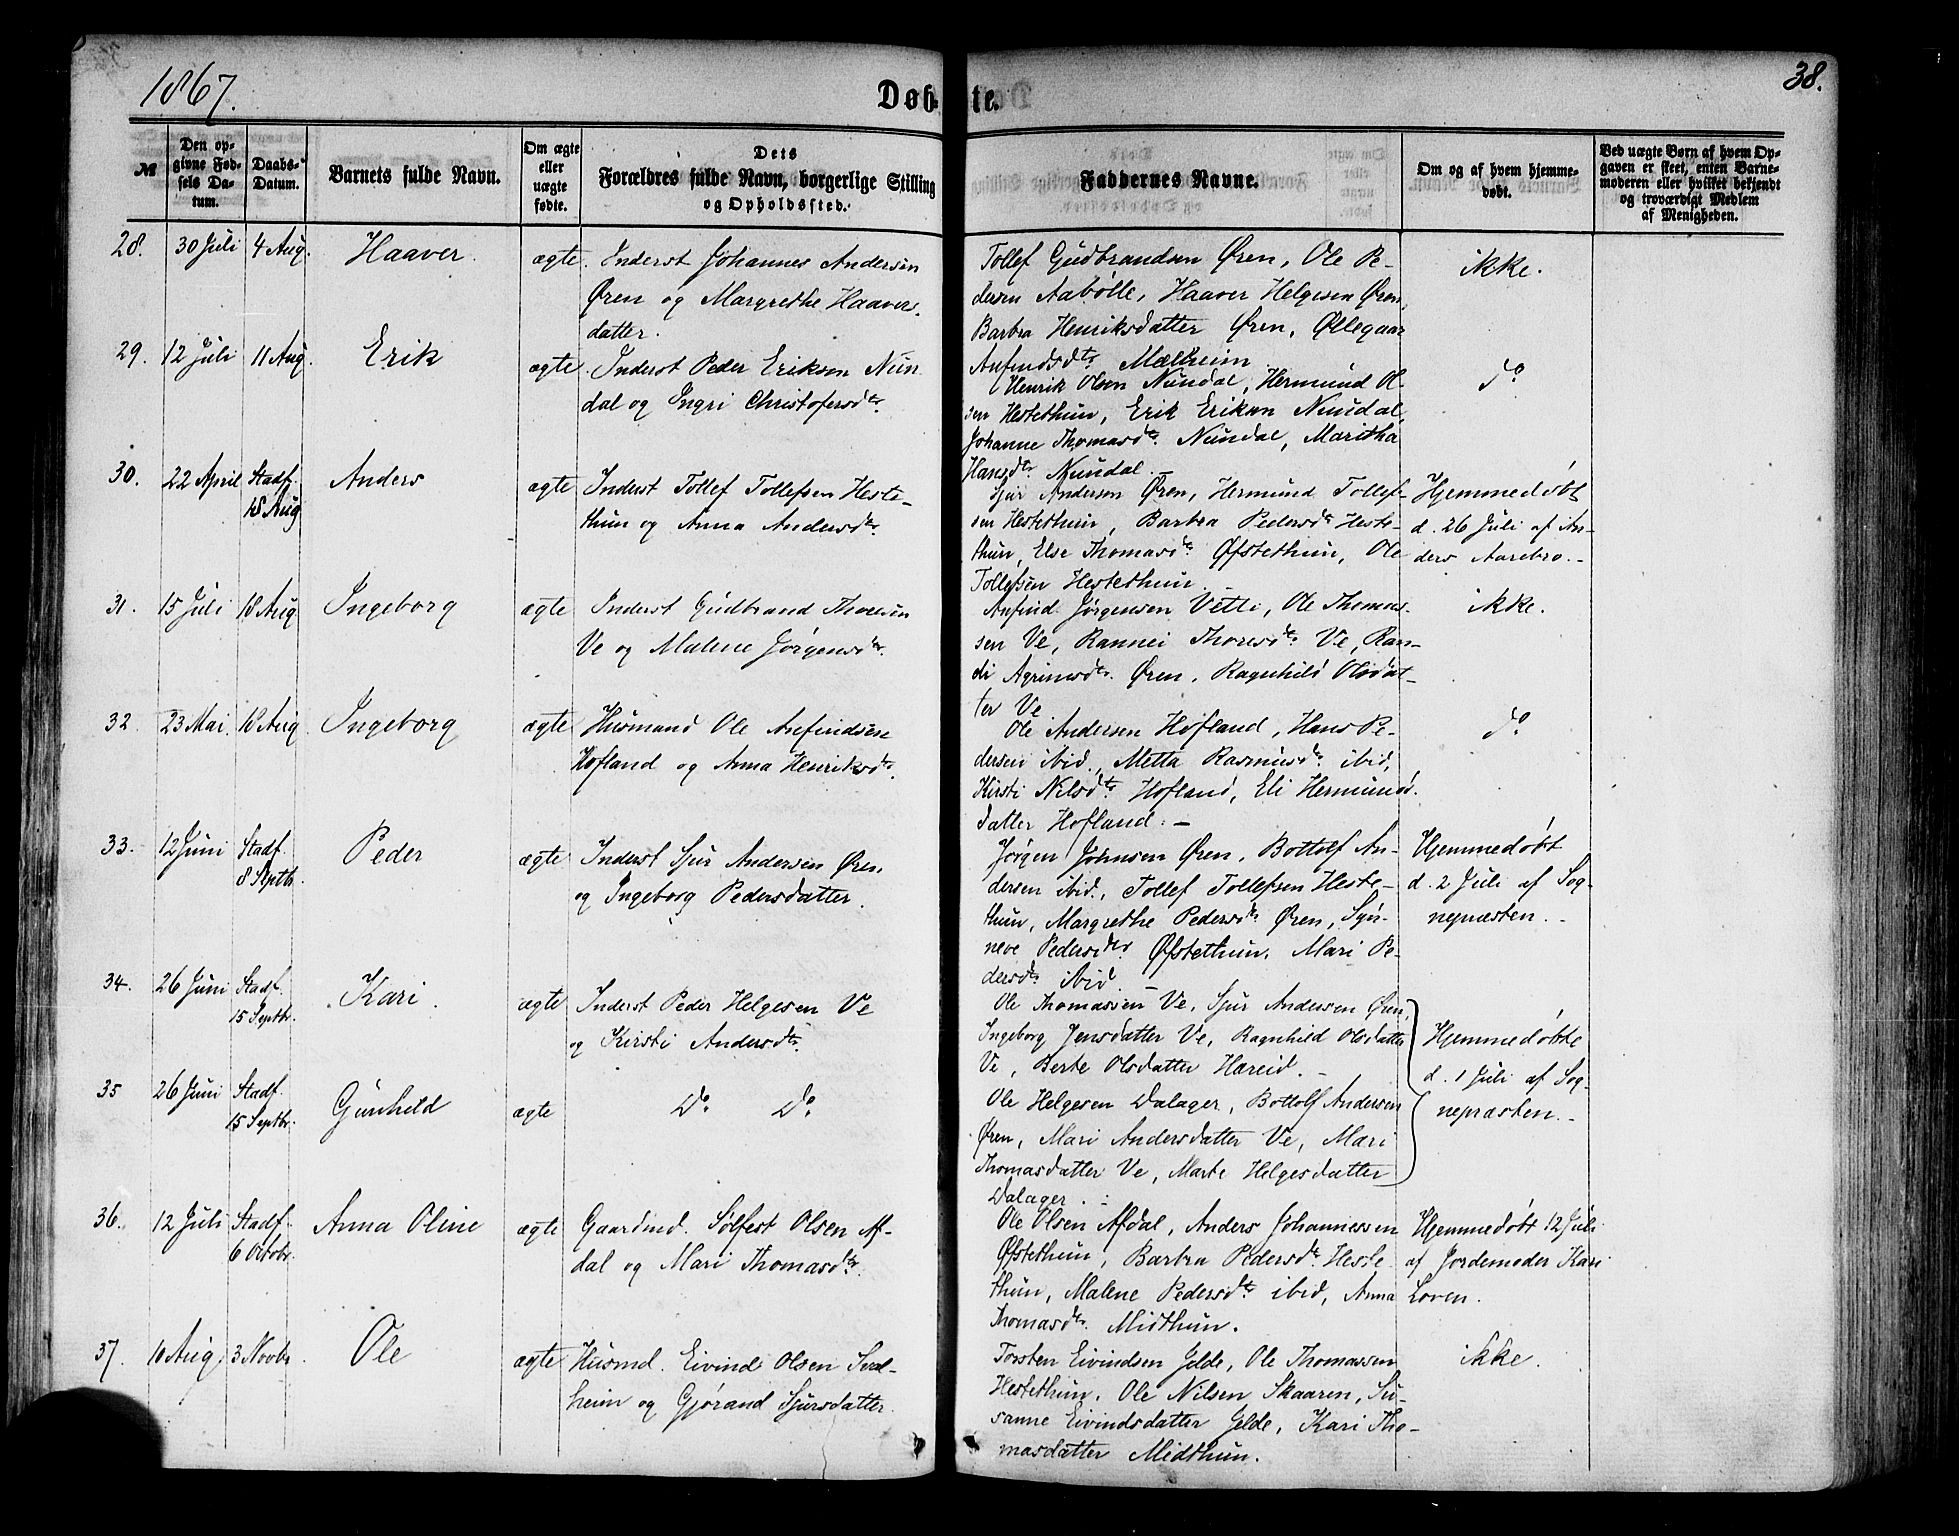 1867.
Døb-te.
38.
№
Den opgivne Fødsels Datum.
Daabs-Datum.
Barnets fulde Navn.
Om ægte eller uægte fødte.
Dets Forældres fulde Navn, borgerlige Stilling og Opholdssted.
Faddernes Navne.
Om og af hvem hjemmedøbt.
Ved uægte Børn af hvem Opgaven er skeet, enten Barnemoderen eller hvilket bekjendt og troværdigt Medlem af Menigheden.
28. 30 Juli 4 Aug. Haaver. ægte. Inderst Johannes Andersen
Øren og Margrethe Haavers-
datter.
Tollef Gudbrandsen Øren, Ole Pe-
dersen Aabølle, Haaver Helgesen Øren,
Barbra Henriksdatter Øren, Øllegaar
Anfindsdtr. Mælheim
ikke.
29. 12 Juli 11 Aug. Erik ægte. Inderst Peder Eriksen Nun-
dal og Ingri Christofersdtr.
Henrik Olsen Nundal, Hermund Ol-
sen Hestethun, Erik Eriksen Nundal,
Johanne Thomasdtr. Nundal, Maritha
Hansdtr. Nundal.
do
30. 22 April Stadf. 18 Aug Anders ægte Inderst Tollef Tollefsen Heste-
thun og Anna Andersdtr.
Sjur Andersen Øren, Hermund Tollef-
sen Hestethun, Barbra Pedersdtr Heste-
thun, Else Thomasdtr. Øfstethun, Ole
Tollefsen Hestethun
Hjemmedøbt
d. 26 Juli af An-
ders Aarebro.-
31. 15 Juli 18 Aug. Ingeborg ægte Inderst Gudbrand Thoresen
Ve og Malene Jørgensdtr.
Anfind Jørgensen Vetti, Ole Thomas-
sen Ve, Rannei Thoresdtr. Ve, Ran-
di Agrimsdtr. Øren, Ragnhild Olsdat-
ter Ve
ikke.
32 23 Mai. 18 Aug Ingeborg ægte Husmand Ole Anfindsen
Hofland og Anna Henriksdtr.
Ole Andersen Hofland, Hans Pe-
dersen ibid., Metta Rasmusdtr. ibid,
Kirsti Nilsdtr Hofland, Eli Hermunds-
datter Hofland. -
do
33. 12 Juni Stadf. 8 Septb. Peder ægte Inderst Sjur Andersen Øren
og Ingeborg Pedersdatter.
Jørgen Johnsen Øren, Bottolf An-
dersen ibid., Tollef Tollefsen Heste-
thun, Margrethe Pedersdtr. Øren, Syn-
neve Pedersdtr. Øfstethun. Mari Pe-
dersdtr. ibid
Hjemmedøbt
d. 2 Juli af Sog-
nepræsten. -
34. 26 Juni Stadf. 15 Septbr. Kari. ægte Inderst Peder Helgesen Ve
og Kirsti Andersdtr.
Ole Thomassen Ve, Sjur Andersen Øren,
Ingeborg Jensdatter Ve, Ragnhild Olsdatter
Ve, Berte Olsdatter Hæreid. -
Hjemmedøbte
d. 1 Juli af Sog-
nepræsten.-
35 26 Juni Stadf. 15 Septbr. Gunhild ægte Do Do
Ole Helgesen Dalager, Bottolf Andersen
Øren, Mari Andersdatter Ve, Mari
Thomasdatter Ve, Marte Helgesdatter
Dalager.
36. 12 Juli Stadf. 6 Octobr. Anna Oline ægte Gaardmd. Sølfest Olsen Af-
dal og Mari Thomasdtr.
Ole Olsen Afdal, Anders Johannessen
Øfstethun, Barbra Pedersdtr. Heste-
thun, Malene Pedersdtr. ibid, Anna
Thomasdtr. Midthun.
Hjemmedøbt 12 Juli
af Jordemoder Kari
Loven.
37. 10 Aug. 3 Novbr. Ole ægte Husmd. Eivind Olsen Sval-
heim og Gjørand Sjursdatter.
Torsten Eivindsen Jelde, Ole Thomassen
Hestethun, Ole Nilsen Skaaren, Su-
sanne Eivindsdatter Jelde, Kari Tho-
masdatter Midthun.
ikke.